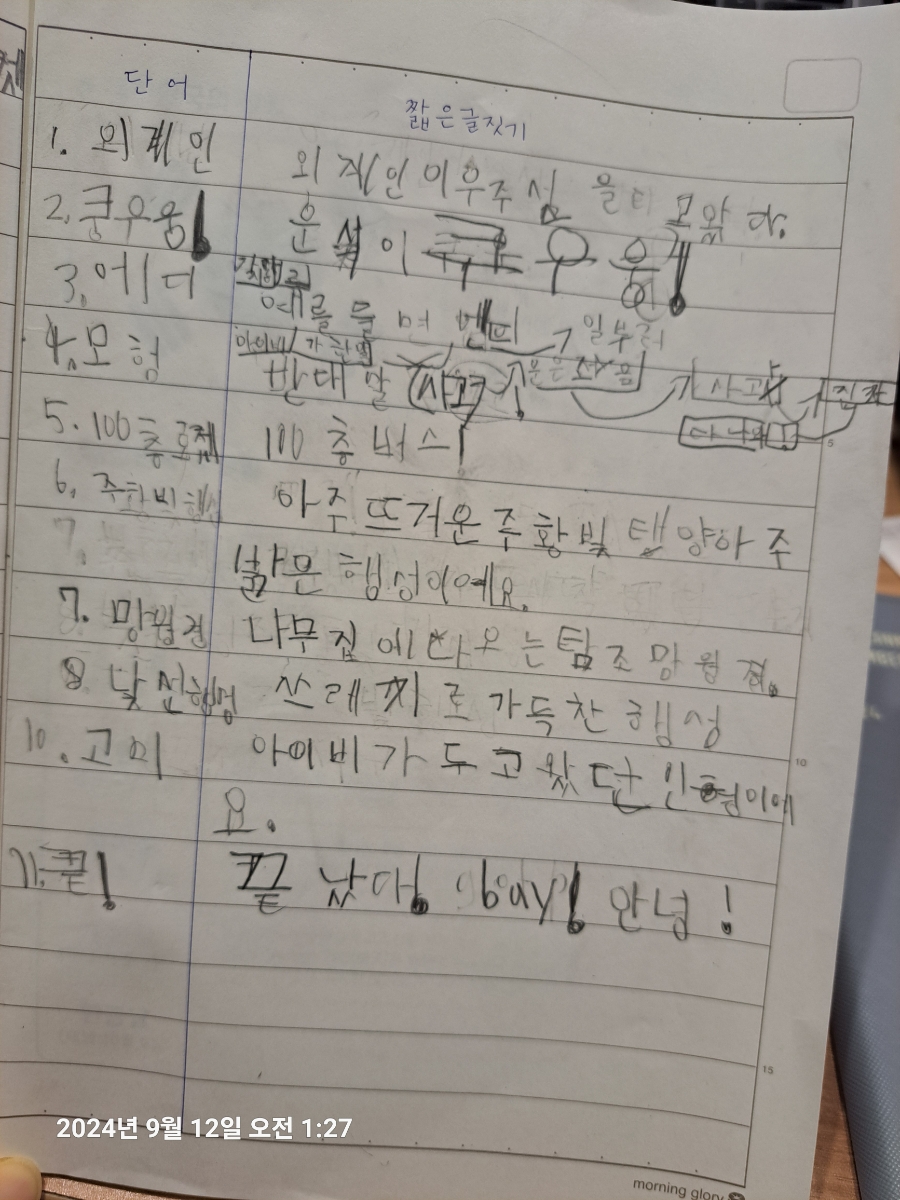 단어 짧은글짓기
1. 외계인 외계인이우주섬 을타 고왔 다.
2. 쿵우웅! 운석이 쿠우웅!
3. 에디
예를 들 면 벤띠 일부러
4. 모험 반대말 사고 사과 진짜
5. 100층로켓 100층버스!
6. 주황빛행성 아주뜨거운주황빛 태양아주
7.
밝은 행성이에요.
7. 망원경 나무집에나오는탐조망원경.
8 낯선행성 쓰레기로가득찬행성
10. 고미 아이비가두고왔던인형이에
요.
11. 끝! 끝났다! bay! 안녕!
2024년 9월 12일 오전 1:27
5
10
15
morning glory